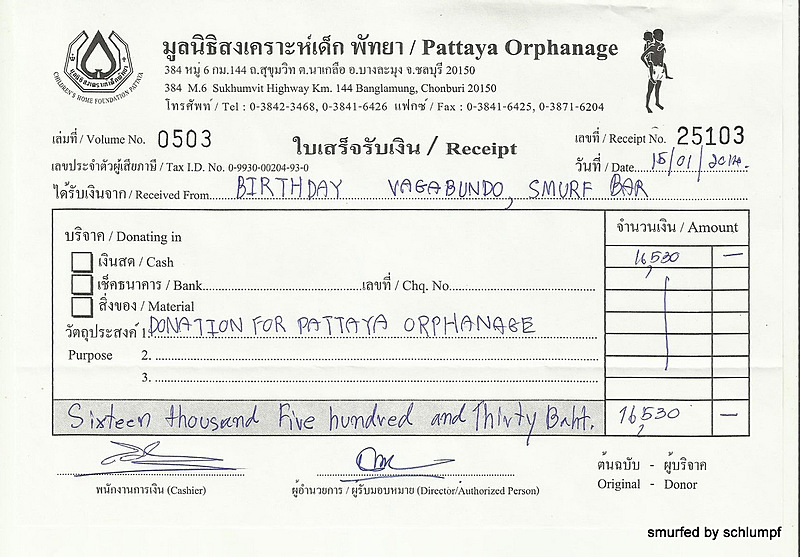 มูลนิธิสงเคราะห์เด็ก พัทยา / Pattaya Orphanage
384 หมู่ 6 กม.144 ถ.สุขุมวิท ต.นาเกลือ อ.บางละมุง จ.ชลบุรี 20150
384 M.6 Sukhumvit Highway Km. 144 Banglamung, Chonburi 20150
โทรศัพท์ / Tel : 0-3842-3468, 0-3841-6426 แฟกซ์ / Fax : 0-3841-6425, 0-3871-6204
มูลนิธิสงเคราะห์เด็กพัทยา
CHILDREN'S HOME FOUNDATION PATTAYA
เล่มที่ / Volume No. 0503
ใบเสร็จรับเงิน / Receipt
เลขที่ / Receipt No. 25103
เลขประจำตัวผู้เสียภาษี / Tax I.D. No. 0-9930-00204-93-0
วันที่ / Date 15/01/2014.
ได้รับเงินจาก / Received From BIRTHDAY VAGABUNDO, SMURF BAR
บริจาค / Donating in
จำนวนเงิน / Amount
เงินสด / Cash 16,530 —
เช็คธนาคาร / Bank เลขที่ / Chq. No.
สิ่งของ / Material
วัตถุประสงค์ 1. DONATION FOR PATTAYA ORPHANAGE
Purpose 2.
3.
Sixteen thousand Five hundred and Thirty Baht. 16,530 —
พนักงานการเงิน (Cashier)
ผู้อำนวยการ / ผู้รับมอบหมาย (Director/Authorized Person)
ต้นฉบับ - ผู้บริจาค
Original - Donor
smurfed by schlumpf